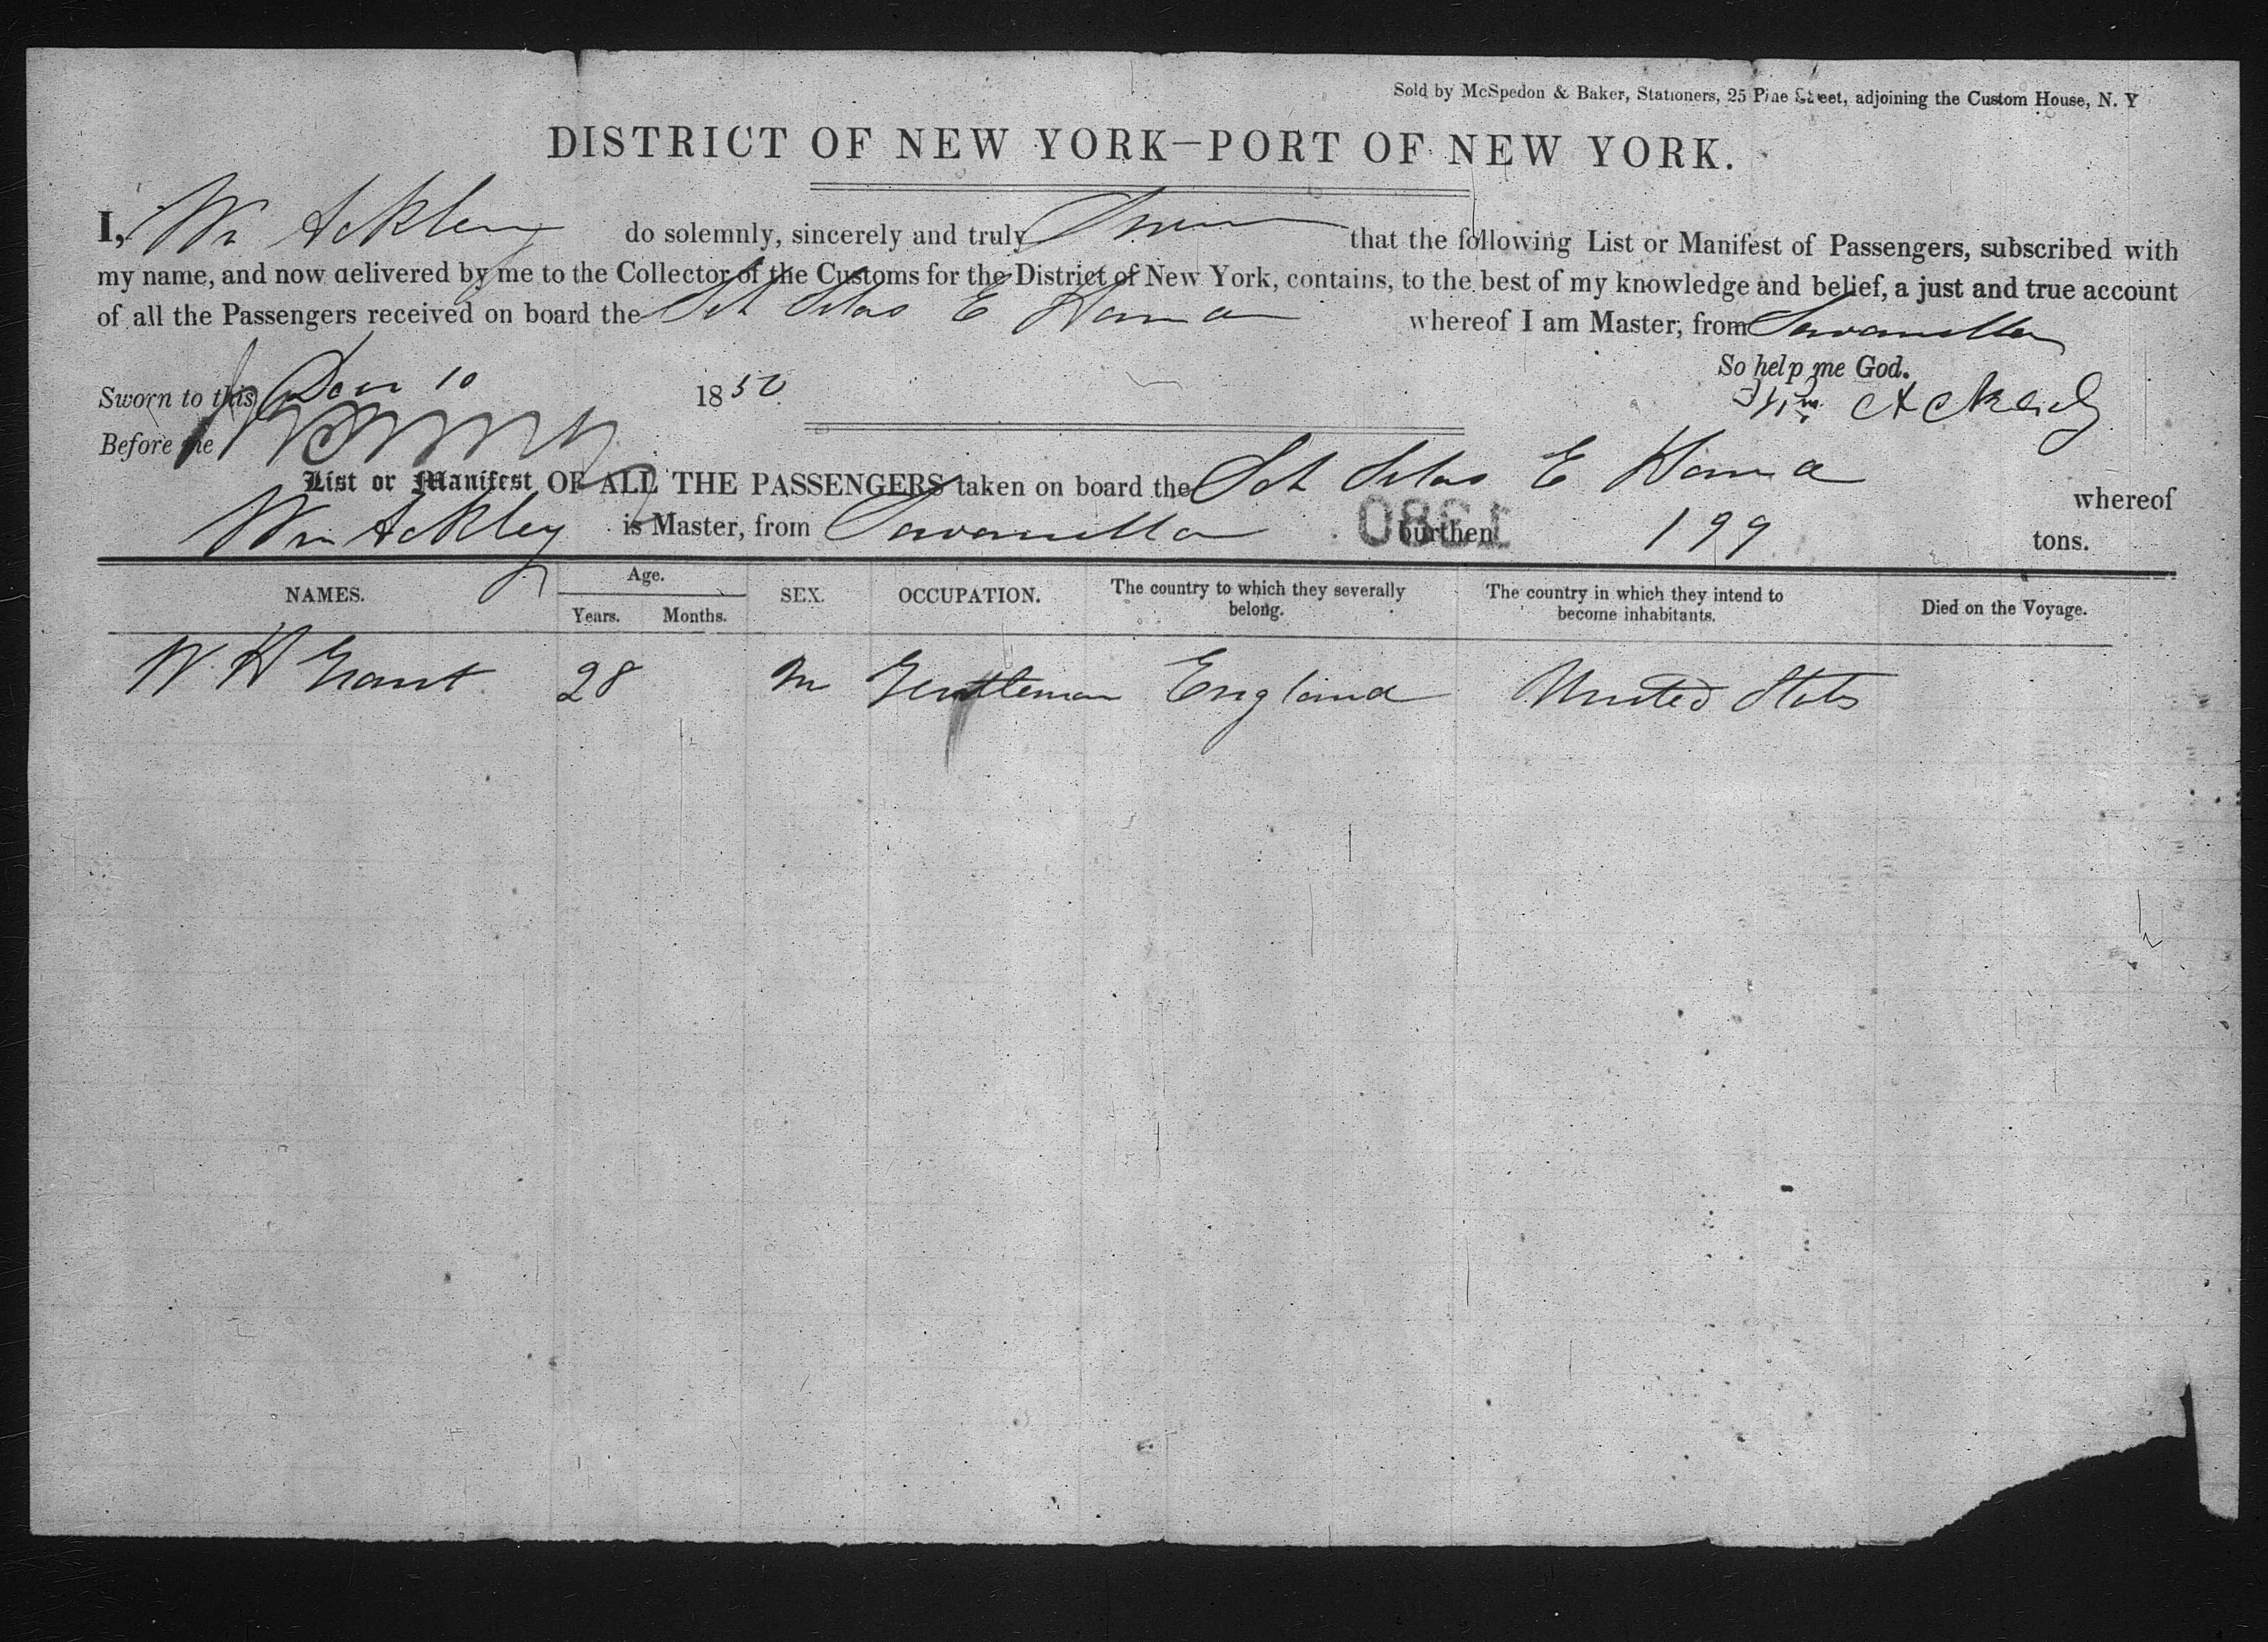 Sold by McSpedon & Baker, Stationers, 25 Pine Street, adjoining the Custom House, N. Y
DISTRICT OF NEW YORK—PORT OF NEW YORK.
I, Wm Ackley do solemnly, sincerely and truly Swear that the following List or Manifest of Passengers, subscribed with
my name, and now delivered by me to the Collector of the Customs for the District of New York, contains, to the best of my knowledge and belief, a just and true account
of all the Passengers received on board the Sch Silas E whereof I am Master, from Savanilla
So help me God.
Sworn to this 10 1850
Wm Ackley
Before me
List or Manifest OF ALL THE PASSENGERS taken on board the Sch Silas E whereof
Wm Ackley is Master, from Savanilla burthen 199 tons.
1380
NAMES. Age. SEX. OCCUPATION. The country to which they severally belong. The country in which they intend to become inhabitants. Died on the Voyage.
Years. Months.
W. H Grant 28 M Gentleman England United States